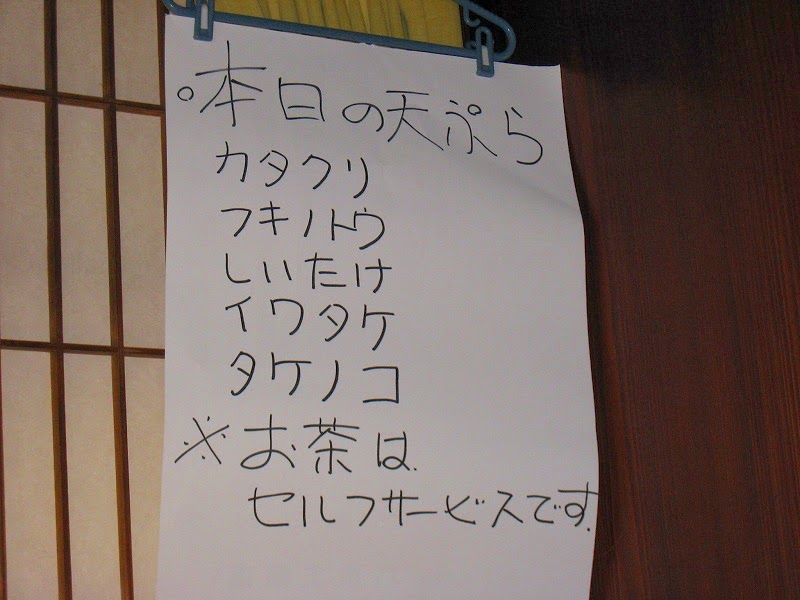 ○本日の天ぷら
カタクリ
フキノトウ
しいたけ
イワタケ
タケノコ
※お茶は
セルフサービスです.